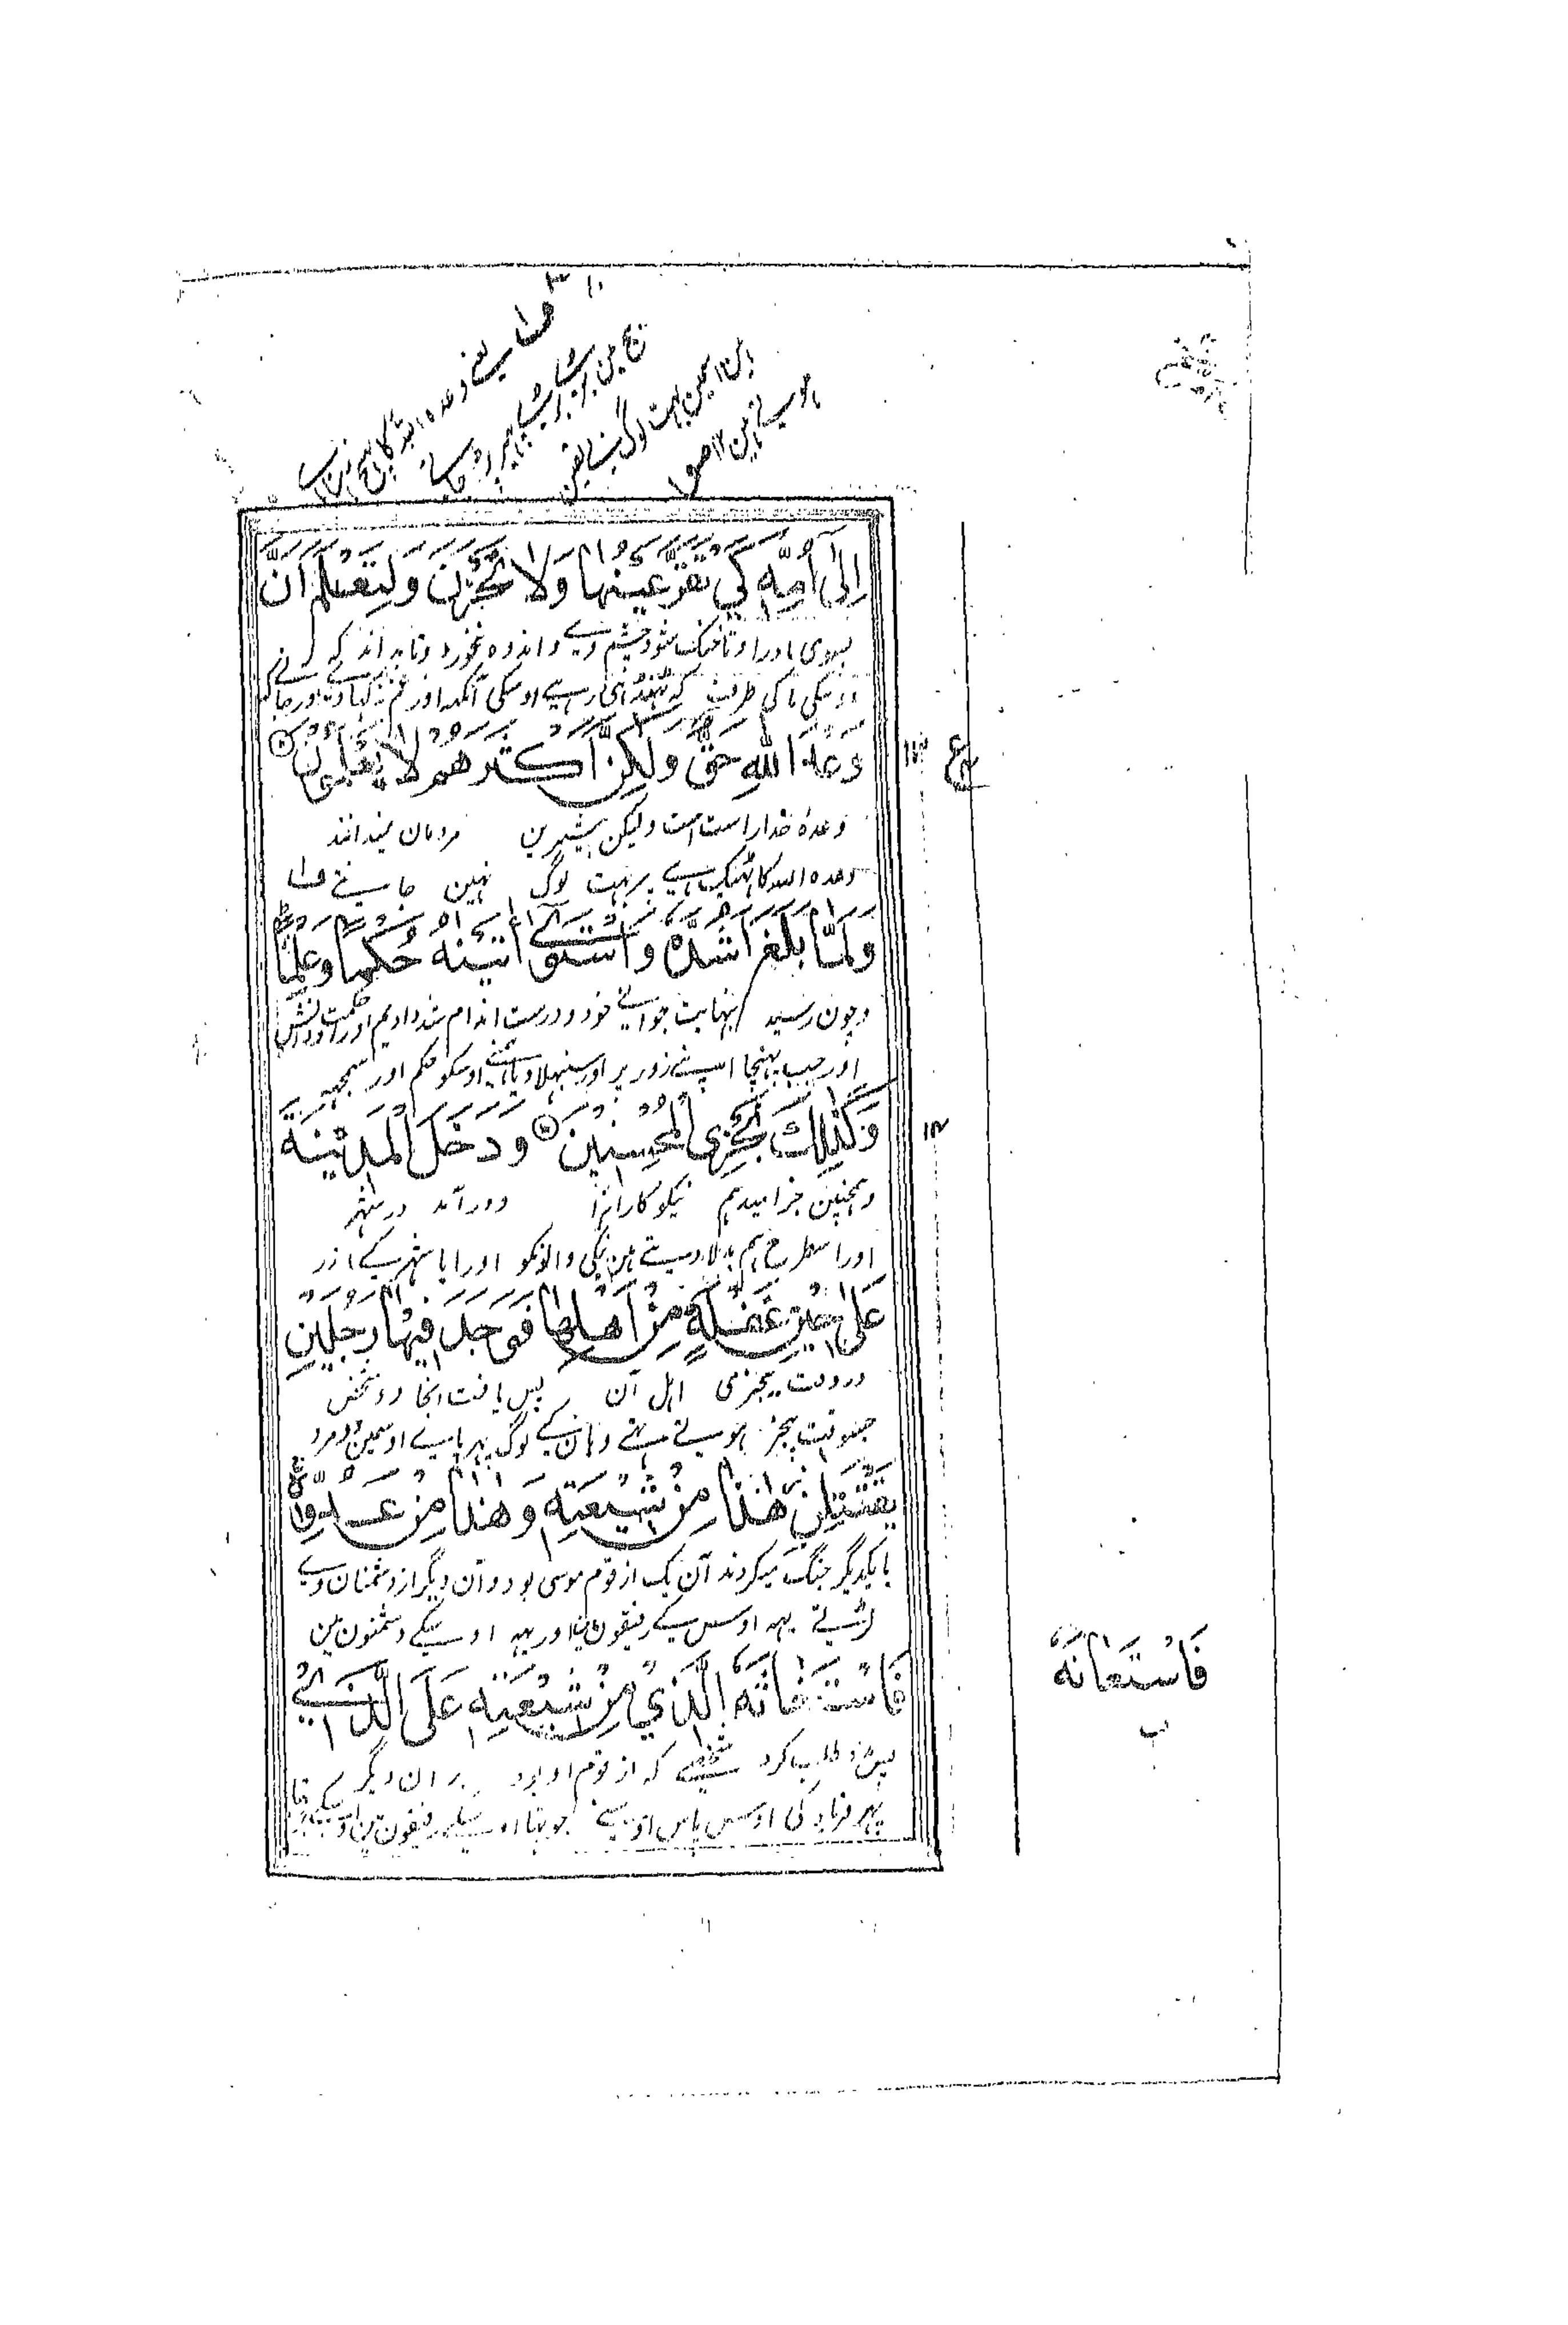 اِلٰٓى اُمِّهٖ كَيْ تَقَرَّ عَيْنُهَا وَلَا تَحْزَنَ وَلِتَعْلَمَ اَنَّ
بسوی مادر او تا خنک شود چشم وے و اندوه نخورد و تا بداند که
اوسکی ما کی طرف که ٹھنڈی رہے اوسکی آنکہ اور غم نہ کہاوے اور جانے
وَعْدَ اللّٰهِ حَقٌّ وَّلٰكِنَّ اَكْثَرَهُمْ لَا يَعْلَمُوْنَ
وعدهٔ خدا راست است ولیکن بیشترین مردمان نمیدانند
وعده الله کا ٹھیک ہے پر بہت لوگ نہین جانتے
وَلَمَّا بَلَغَ اَشُدَّهٗ وَاسْتَوٰٓى اٰتَيْنٰهُ حُكْمًا وَّعِلْمًا
وچون رسید بنهایت جوانی خود و درست اندام شد دادیم او را حکمت و دانش
اور جب پہنچا اپنے زور پر اور سنبہلا دیا ہمنے اوسکو حکم اور سمجہہ
وَكَذٰلِكَ نَجْزِى الْمُحْسِنِيْنَ وَدَخَلَ الْمَدِيْنَةَ
۱۴
وهمچنین جزا میدهیم نیکوکارانرا ودر آمد در شهر
اور اسطرح ہم بدلا دیتے ہین نیکی والونکو اور ایا شہر کے اندر
عَلٰى حِيْنِ غَفْلَةٍ مِّنْ اَهْلِهَا فَوَجَدَ فِيْهَا رَجُلَيْنِ
در وقت بیخبری اهل آن پس یافت انجا دو شخص
جسوقت بیخبر ہوتے تہے وہان کے لوگ پہر پائے اوسمین دو مرد
يَقْتَتِلٰنِ هٰذَا مِنْ شِيْعَتِهٖ وَهٰذَا مِنْ عَدُوِّهٖ
با یکدیگر جنگ میکردند آن یک از قوم موسی بود و آن دیگر از دشمنان وے
لڑتے یہہ اوسکے رفیقون مین اور یہہ اوسکے دشمنون مین
فَاسْتَغَاثَهُ الَّذِيْ مِنْ شِيْعَتِهٖ عَلَى الَّذِيْ
پس طلب کرد شخصے که از قوم او بود بر ان دیگر
پہر فریاد کی اوس پاس اوسنے جو تہا اوسکے رفیقون مین
فَاسْتَعَانَهُ